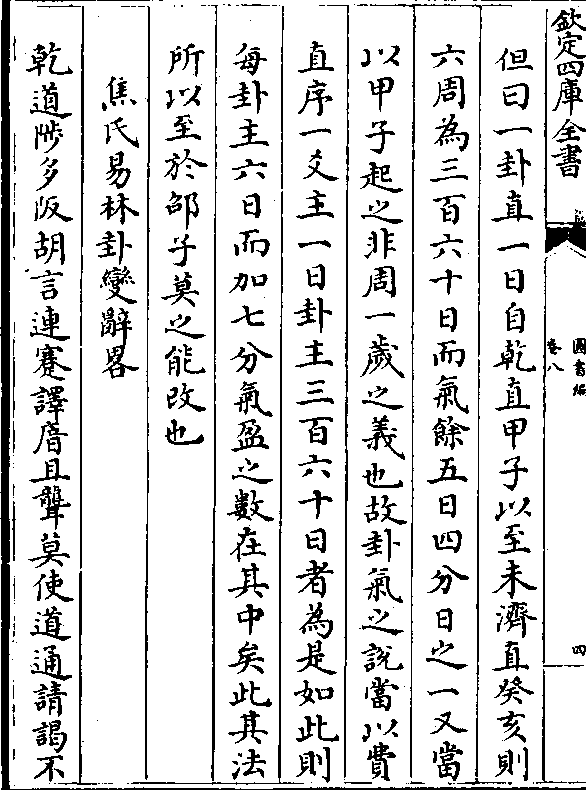 欽定四庫全書
圖書編
卷八
四
但曰一卦直一日自乾直甲子以至未濟直癸亥則
六周為三百六十日而氣餘五日四分日之一又當
以甲子起之非周一歲之義也故卦氣之說當以費
直序一爻主一日卦主三百六十日者為是如此則
每卦主六日而加七分氣盈之數在其中矣此其法
所以至於邵子莫之能改也
焦氏易林卦變辭畧
乾道陟多阪胡言連蹇譯瘖且聾莫使道通請謁不